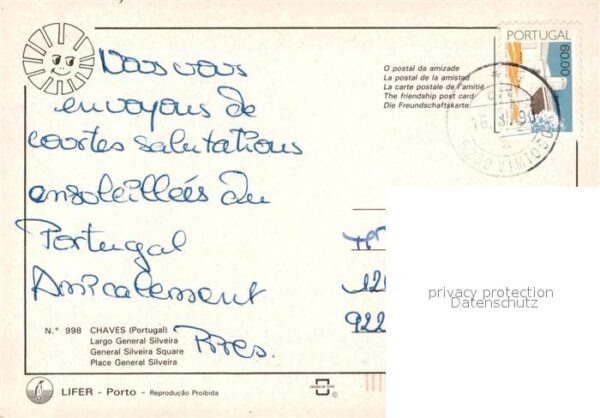 Nous vous
envoyons de
courtes salutations
ensoleillées du
Portugal
Amicalement
O postal da amizade
La postal de la amistad
La carte postale de l'amitié
The friendship post card
Die Freundschaftskarte
PORTUGAL
60,00
922
privacy protection
Datenschutz
N.° 998 CHAVES (Portugal)
Largo General Silveira
General Silveira Square
Place General Silveira
LIFER - Porto - Reprodução Proibida
©